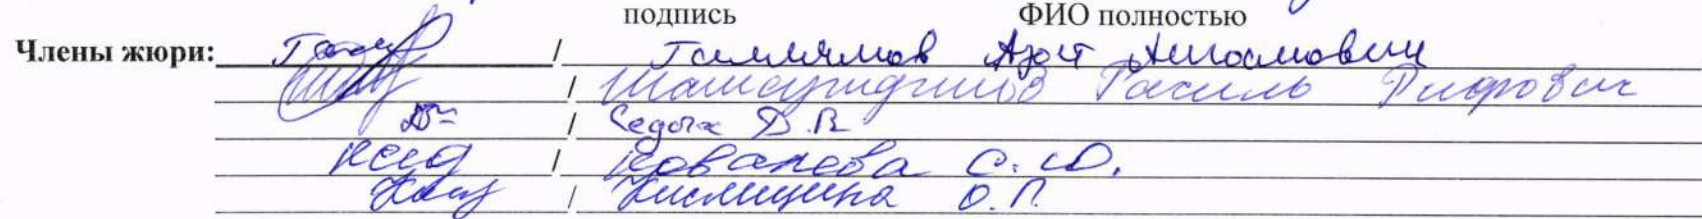 подпись ФИО полностью
Члены жюри: / Гиллямов Азат
/ Шамсутдинов Расиль Рифович
/ Седых Д.В.
/ Ковалева С.Ю.
/ Кислицина О.П.